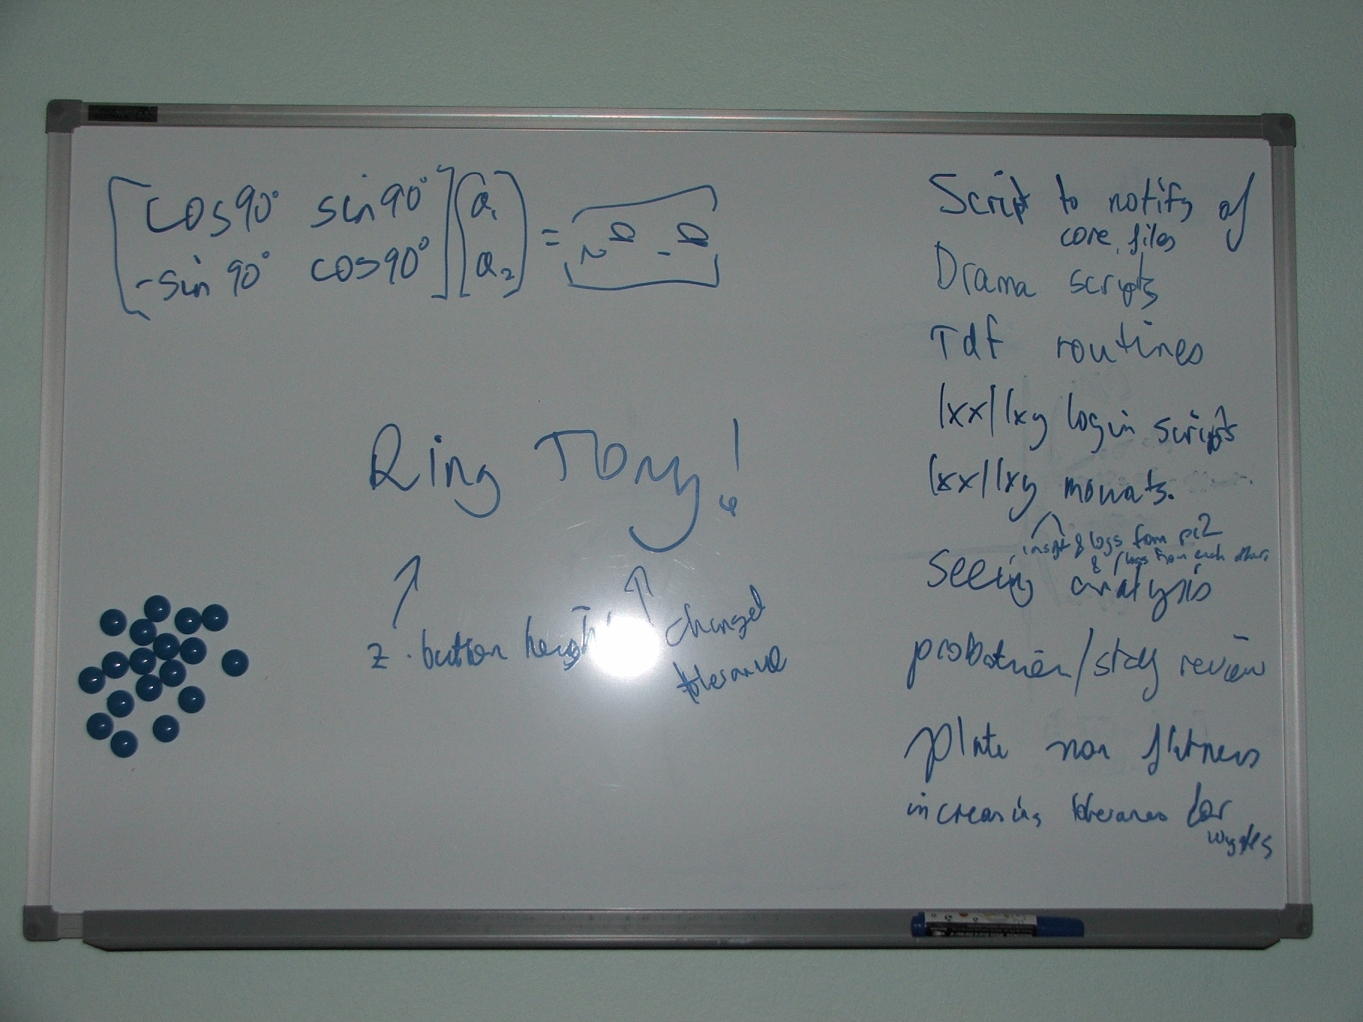 cos90° sin90° a₁
-sin90° cos90° a₂ =
Ring Tony!
z. button height
changed
tolerance
Script to notify of
core files
Drama scripts
Tdf routines
lxx/lxy login scripts
lxx/lxy
& logs from pc2
& logs from each other
Seeing analysis
probation/stay review
plate non flatness
increasing tolerances for